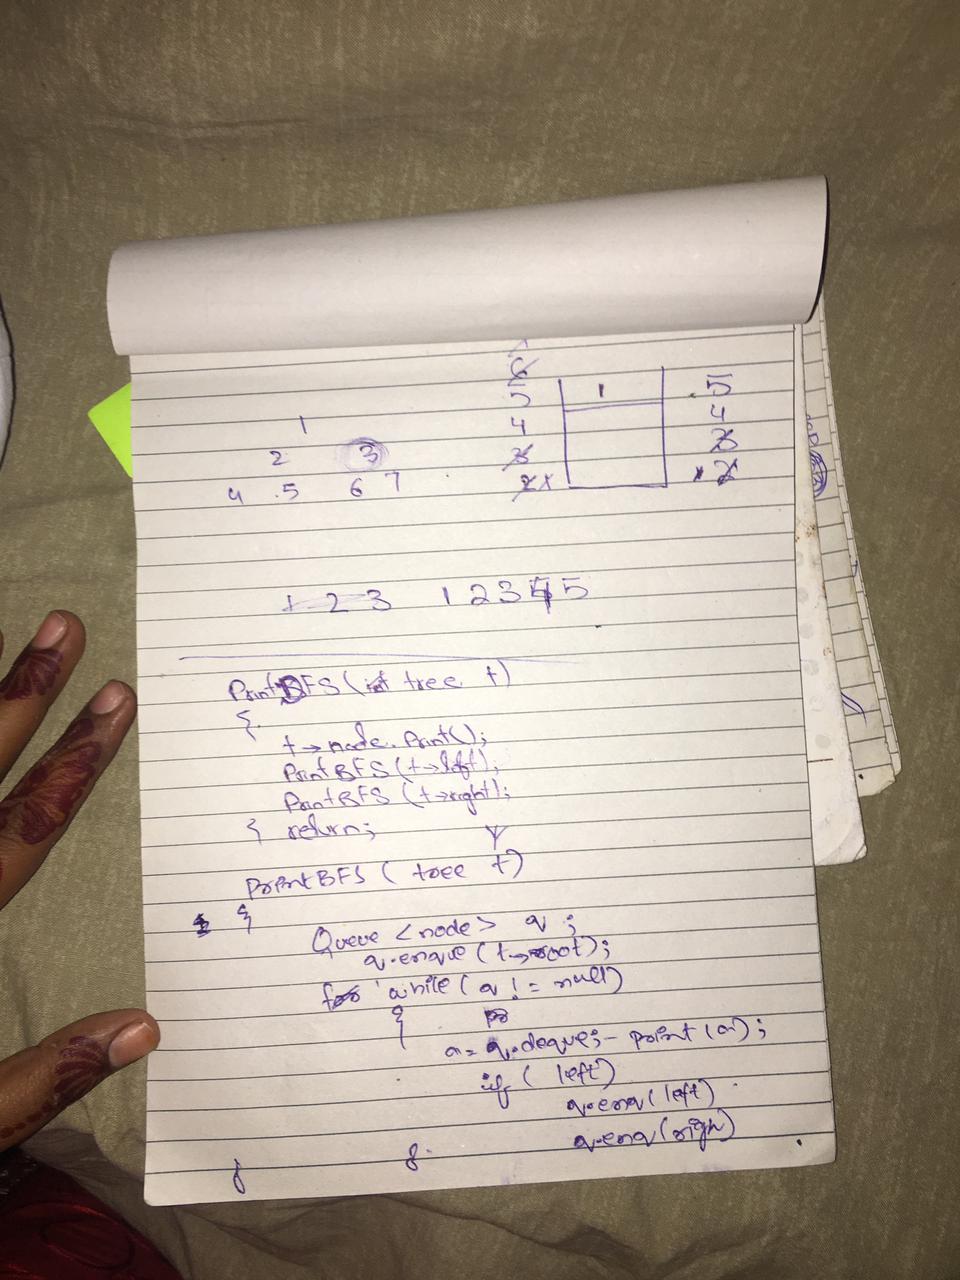 1
2 3
4 5 6 7
6
5
4
3
2 x
1
5
4
3
x 2
1 2 3 1 2 3 4 5
PrintBFS ( tree t)
{
t→node.Print();
PrintBFS (t→left);
PrintBFS (t→right);
} return;
PrintBFS ( tree t)
{
Queue <node> q ;
q.enque (t→root);
for while ( q != null)
{
a= q.deque;- print (a);
if ( left)
q.enq( left)
q.enq (righ)
}
}